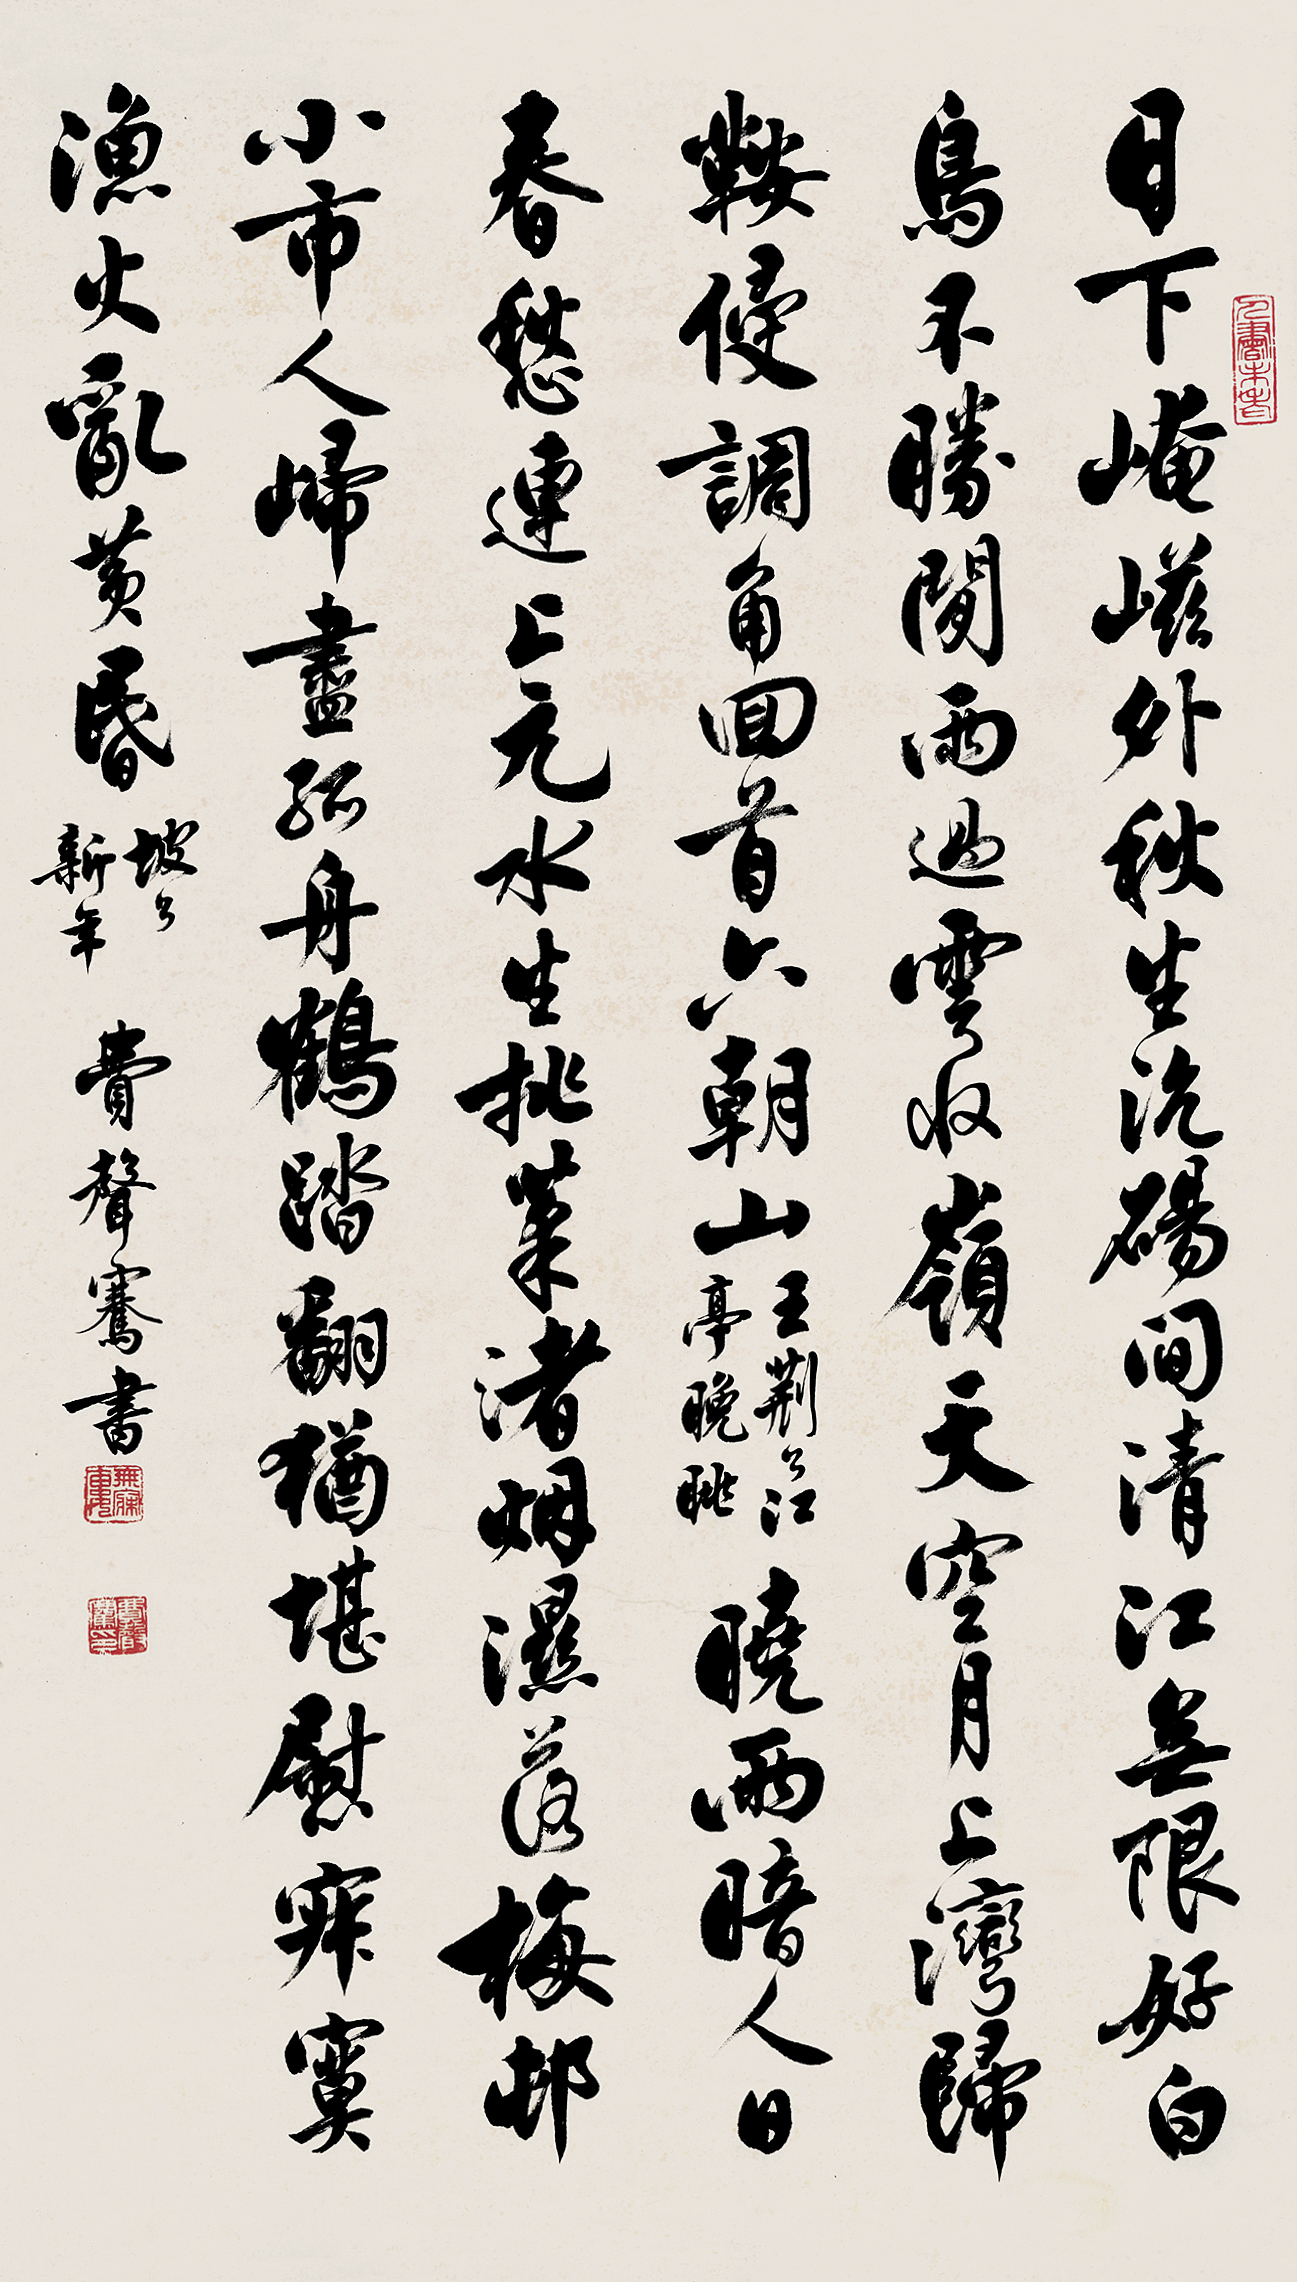 日下崦嵫外秋生沆碭間清江無限好白
鳥不勝閒雨過雲收嶺天空月上灣歸
鞍侵調角回首六朝山
王荊公江
亭晚眺
曉雨暗人日
春愁連上元水生挑菜渚烟濕落梅邨
小市人歸盡孤舟鶴踏翻猶堪慰寂寞
漁火亂黃昏
坡公
新年
費聲騫書